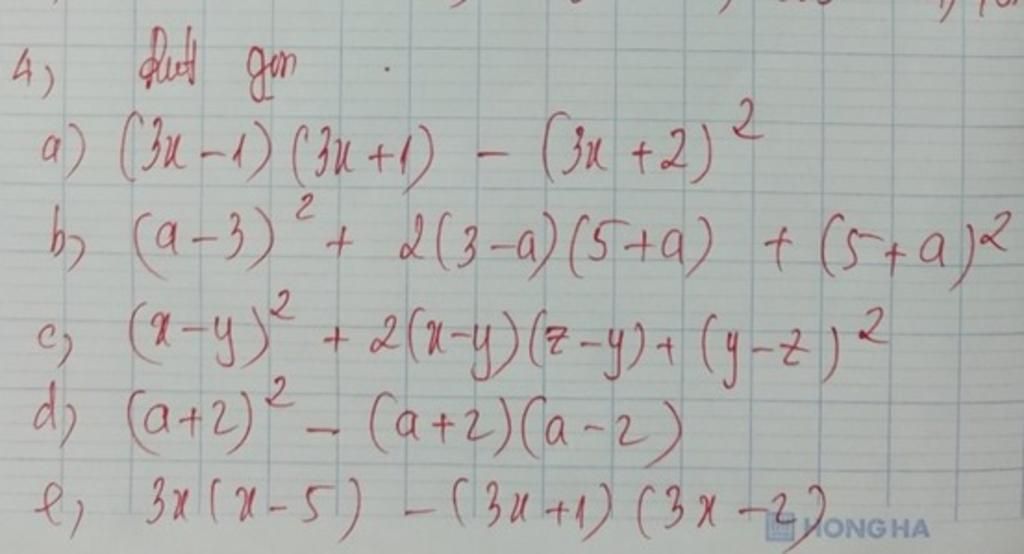 4) Rút gọn
a) (3x-1)(3x+1) - (3x+2)²
b) (a-3)² + 2(3-a)(5+a) + (5+a)²
c) (x-y)² + 2(x-y)(z-y) + (y-z)²
d) (a+2)² - (a+2)(a-2)
e) 3x(x-5) - (3x+1)(3x-2)
HONG HA